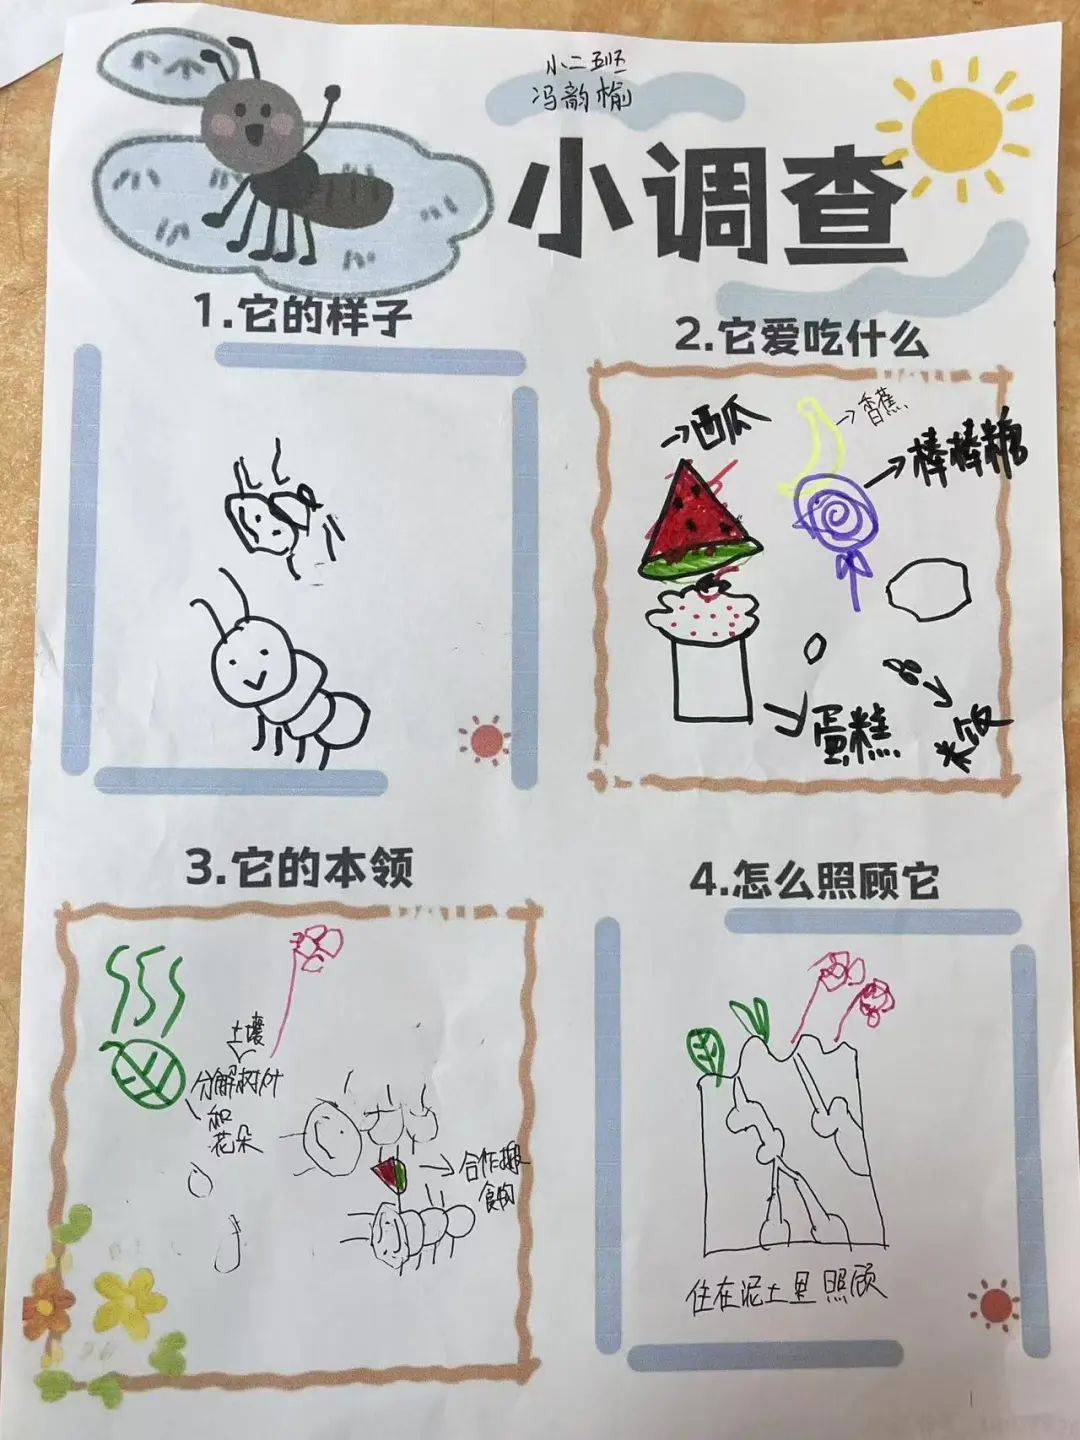 小二班
冯韵榆
小调查
1.它的样子
2.它爱吃什么
西瓜
香蕉
棒棒糖
蛋糕
米饭
3.它的本领
土壤
分解树叶
和
花朵
合作搬
食物
4.怎么照顾它
住在泥土里照顾